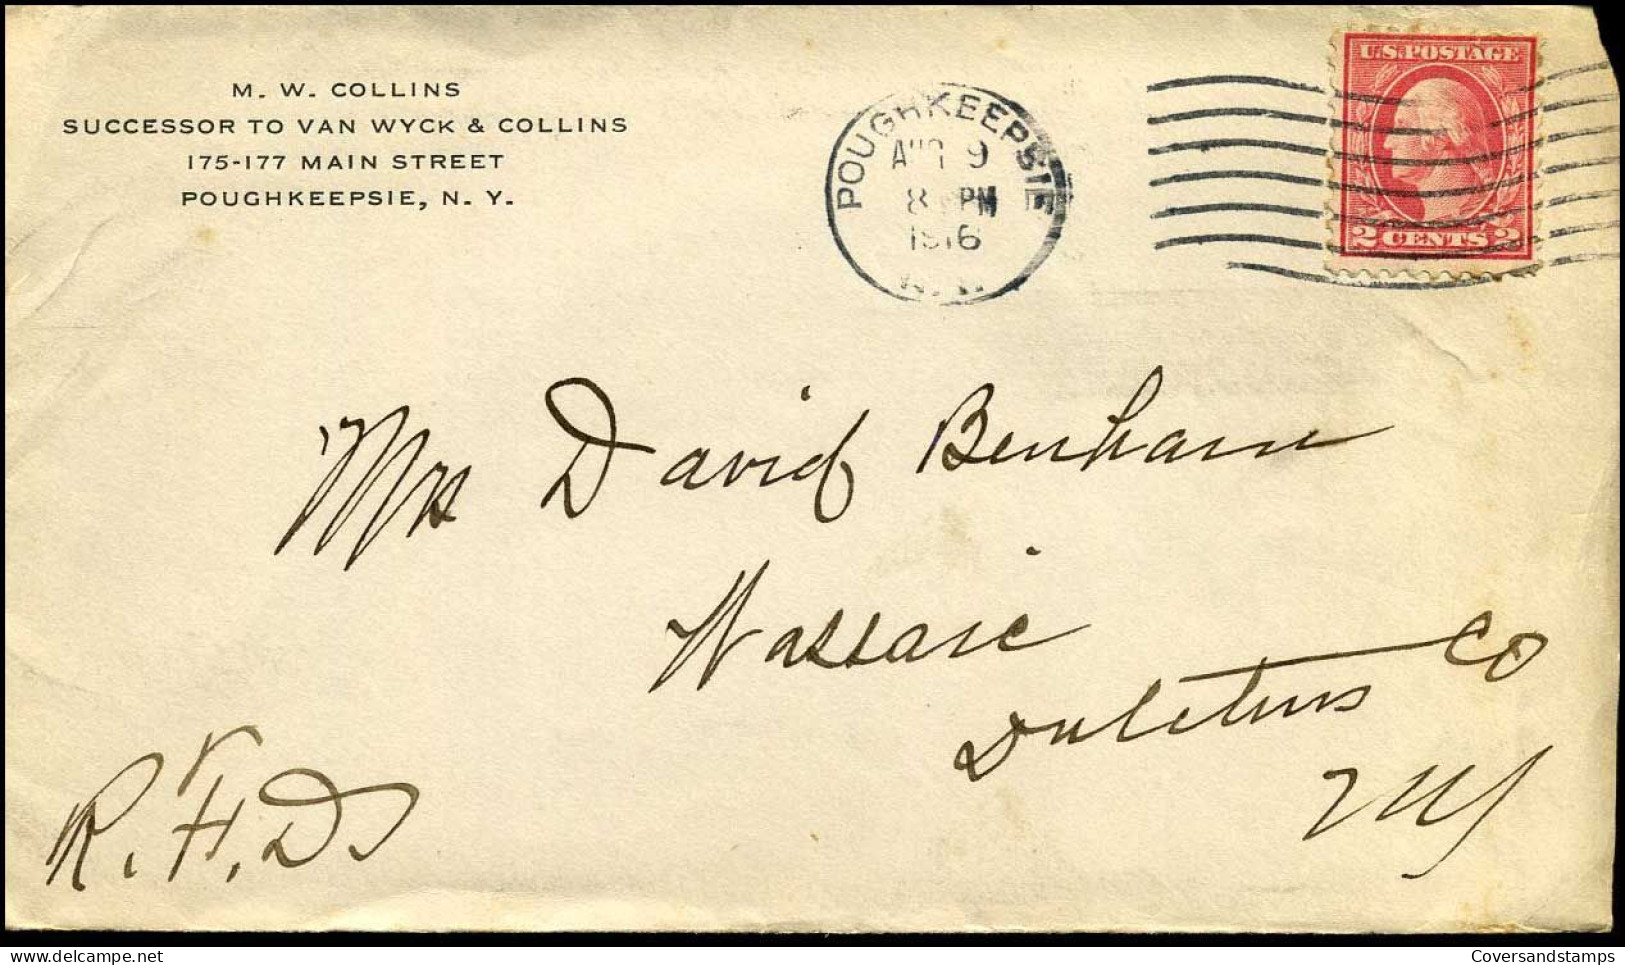 M. W. COLLINS
SUCCESSOR TO VAN WYCK & COLLINS
175-177 MAIN STREET
POUGHKEEPSIE, N. Y.
POUGHKEEPSIE
AUG 9
8 PM
1916
N.Y.
U.S. POSTAGE
2 CENTS 2
Mrs David Benham
Wassaic
Dutchess Co
NY
R. F. D.
Coversandstamps